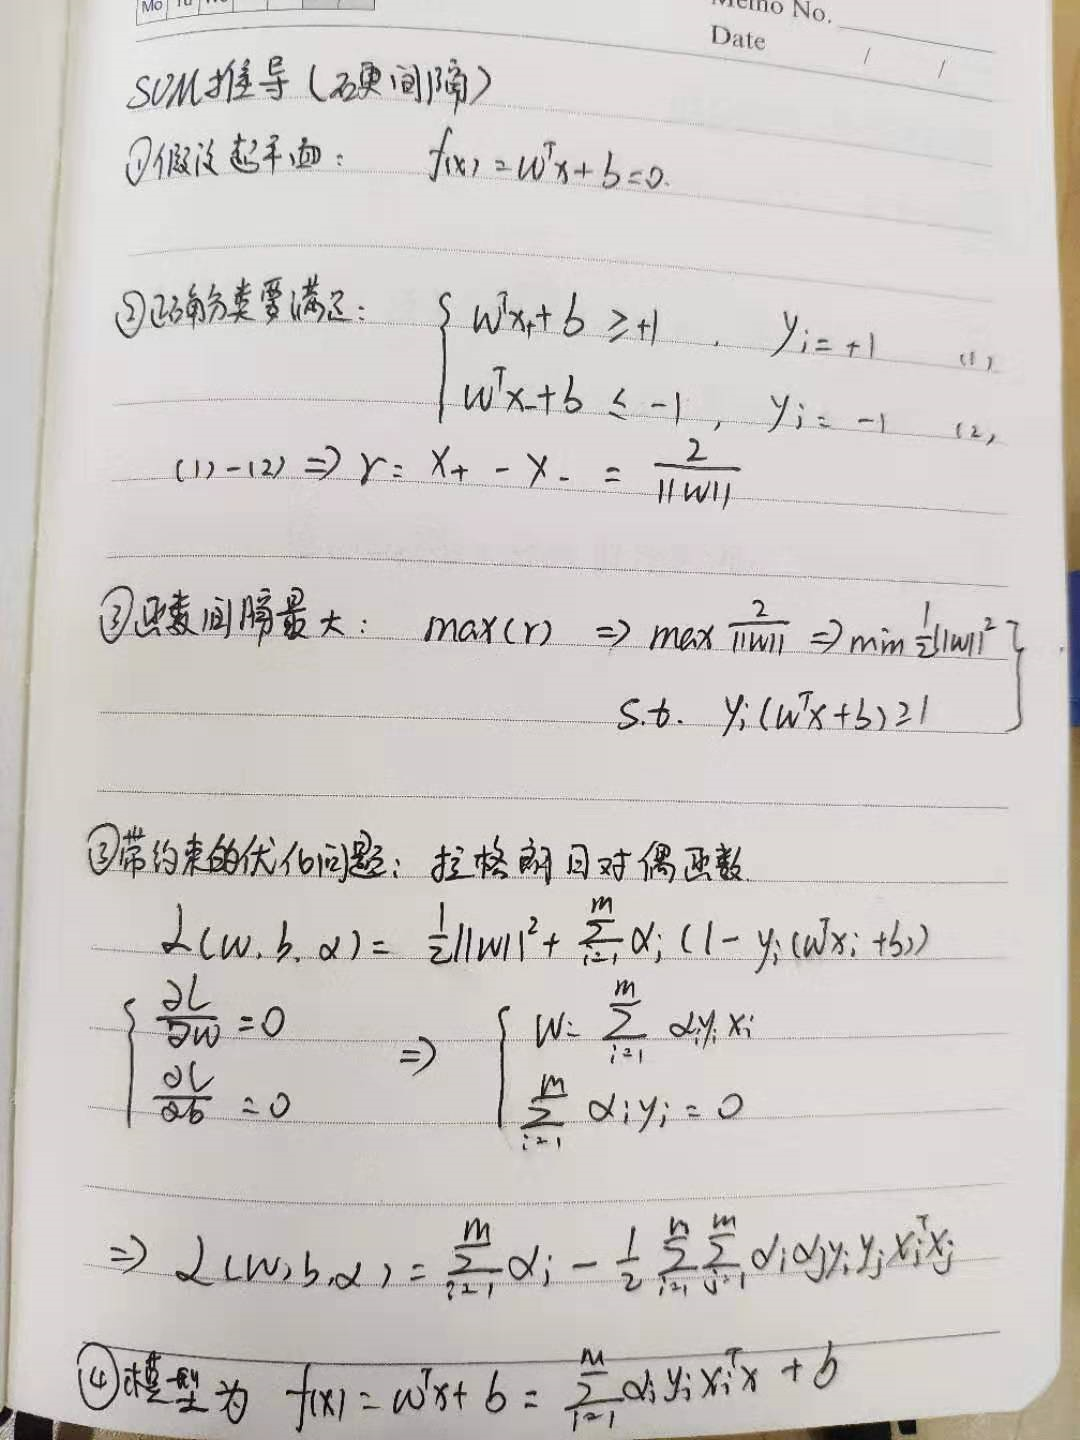 Mo Tu We
Memo No.
Date / /
SVM推导（硬间隔）
①假设超平面： f(x) = wᵀx + b = 0.
②正确分类要满足： { wᵀx₊ + b ≥ +1 , yᵢ = +1 (1)
wᵀx₋ + b ≤ -1 , yᵢ = -1 (2)
(1)-(2) ⇒ r = x₊ - x₋ = 2/||w||
③函数间隔最大： max(r) ⇒ max 2/||w|| ⇒ min ½||w||² }
s.t. yᵢ(wᵀx + b) ≥ 1
③带约束的优化问题：拉格朗日对偶函数
L(w, b, α) = ½||w||² + Σᵢ₌₁ᵐ αᵢ (1 - yᵢ(wᵀxᵢ + b))
{ ∂L/∂w = 0 ⇒ { w = Σᵢ₌₁ᵐ αᵢyᵢxᵢ
∂L/∂b = 0 Σᵢ₌₁ᵐ αᵢyᵢ = 0
⇒ L(w, b, α) = Σᵢ₌₁ᵐ αᵢ - ½ Σᵢ₌₁ᵐ Σⱼ₌₁ᵐ αᵢαⱼyᵢyⱼxᵢᵀxⱼ
④模型为 f(x) = wᵀx + b = Σᵢ₌₁ᵐ αᵢyᵢxᵢᵀx + b